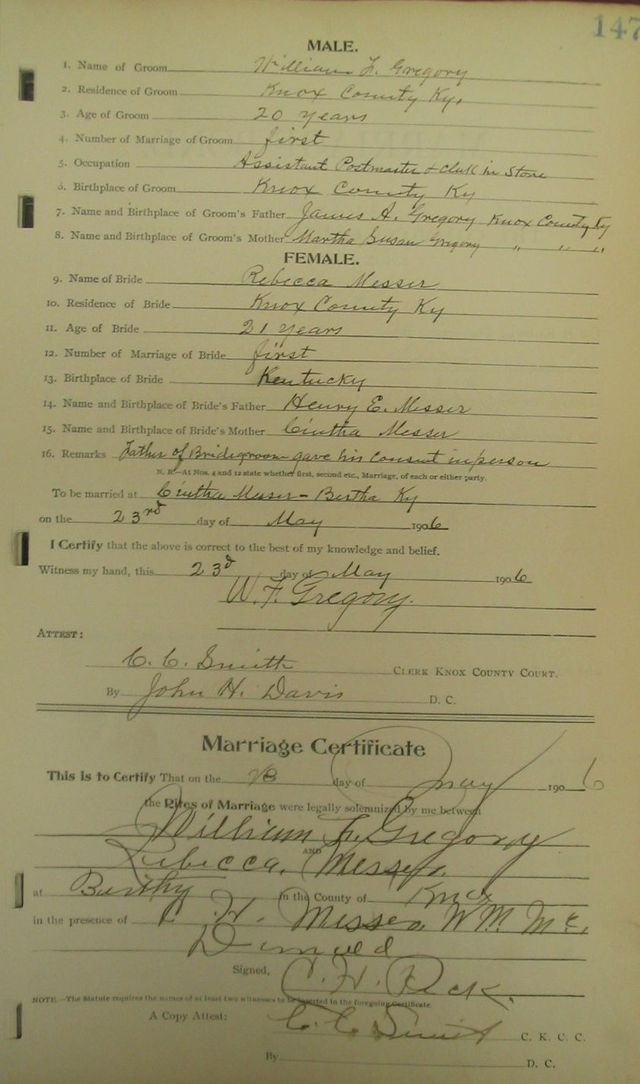 147
MALE.
1. Name of Groom William F. Gregory
2. Residence of Groom Knox County Ky.
3. Age of Groom 20 years
4. Number of Marriage of Groom first
5. Occupation Assistant Postmaster & Clerk in Store
6. Birthplace of Groom Knox County Ky
7. Name and Birthplace of Groom's Father James A. Gregory Knox County Ky
8. Name and Birthplace of Groom's Mother Martha Susan Gregory " " "
FEMALE.
9. Name of Bride Rebecca Messer
10. Residence of Bride Knox County Ky
11. Age of Bride 21 years
12. Number of Marriage of Bride first
13. Birthplace of Bride Kentucky
14. Name and Birthplace of Bride's Father Henry E. Messer
15. Name and Birthplace of Bride's Mother Cintha Messer
16. Remarks Father of Bridegroom gave his consent in person
N. B.—At Nos. 4 and 12 state whether first, second etc., Marriage, of each or either party.
To be married at Cintha Messer - Bertha Ky
on the 23rd day of May 1906
I Certify that the above is correct to the best of my knowledge and belief.
Witness my hand, this 23d day of May 1906
W. F. Gregory.
ATTEST:
C. C. Smith CLERK KNOX COUNTY COURT.
By John H. Davis D. C.
Marriage Certificate
This is to Certify That on the 23 day of may 1906
the Rites of Marriage were legally solemnized by me between
William F. Gregory
AND
Rebecca. Messer.
at in the County of Knox
in the presence of H. Messer. WM. Mc.
Signed, C. H.
NOTE.—The Statute requires the names of at least two witnesses to be inserted in the foregoing Certificate.
A Copy Attest: C. C. Smith C. K. C. C.
By D. C.